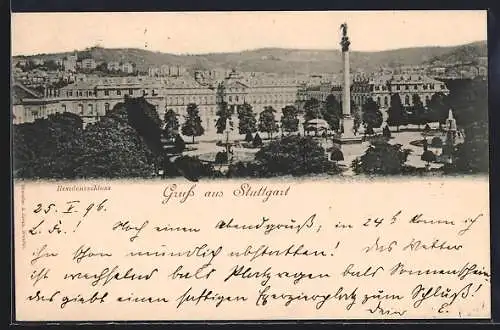 Residenzschloss
Gruß aus Stuttgart
25. V. 96.
L. Fr.! Noch einen Abendgruß, in 24 h kann ich
ihn schon mündlich abstatten! Das Wetter
ist wechselnd bald Platzregen bald Sonnenschein
das giebt einen saftigen Exerzierplatz zum Schluß!
Dein E.